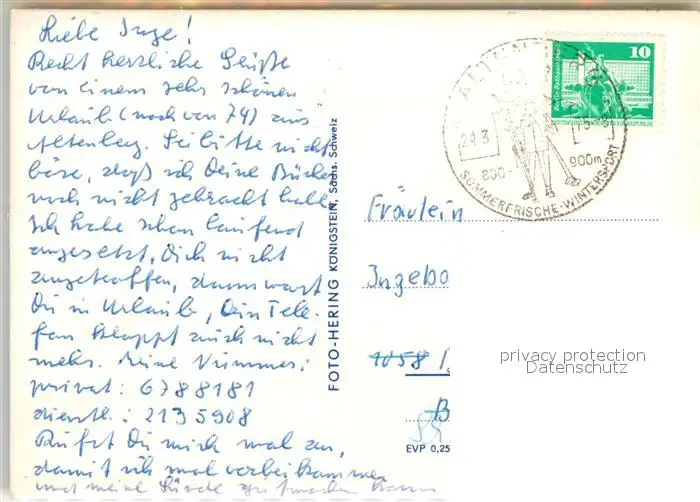 Liebe Inge!
Recht herzliche Grüße
von einem sehr schönen
Urlaub (noch von 74) aus
Altenberg. Sei bitte nicht
böse, daß ich Deine Bücher
noch nicht gebracht habe
Ich habe schon laufend
angesetzt, Dich nicht
angetroffen, dann warst
Du in Urlaub, Dein Tele-
fon klappt auch nicht
mehr. Meine Nummer:
privat: 6788181
dienstl.: 2135908
Rufst Du mich mal an,
damit ich mal vorbeikommen
und meine Sünde gut machen kann
FOTO-HERING KÖNIGSTEIN, Sächs. Schweiz
ALTENBERG
24.3
800-
900m
SOMMERFRISCHE-WINTERSPORT
10
DEUTSCHE DEMOKRATISCHE REPUBLIK
Fräulein
Ingebo
1058
B
EVP 0,25
privacy protection
Datenschutz